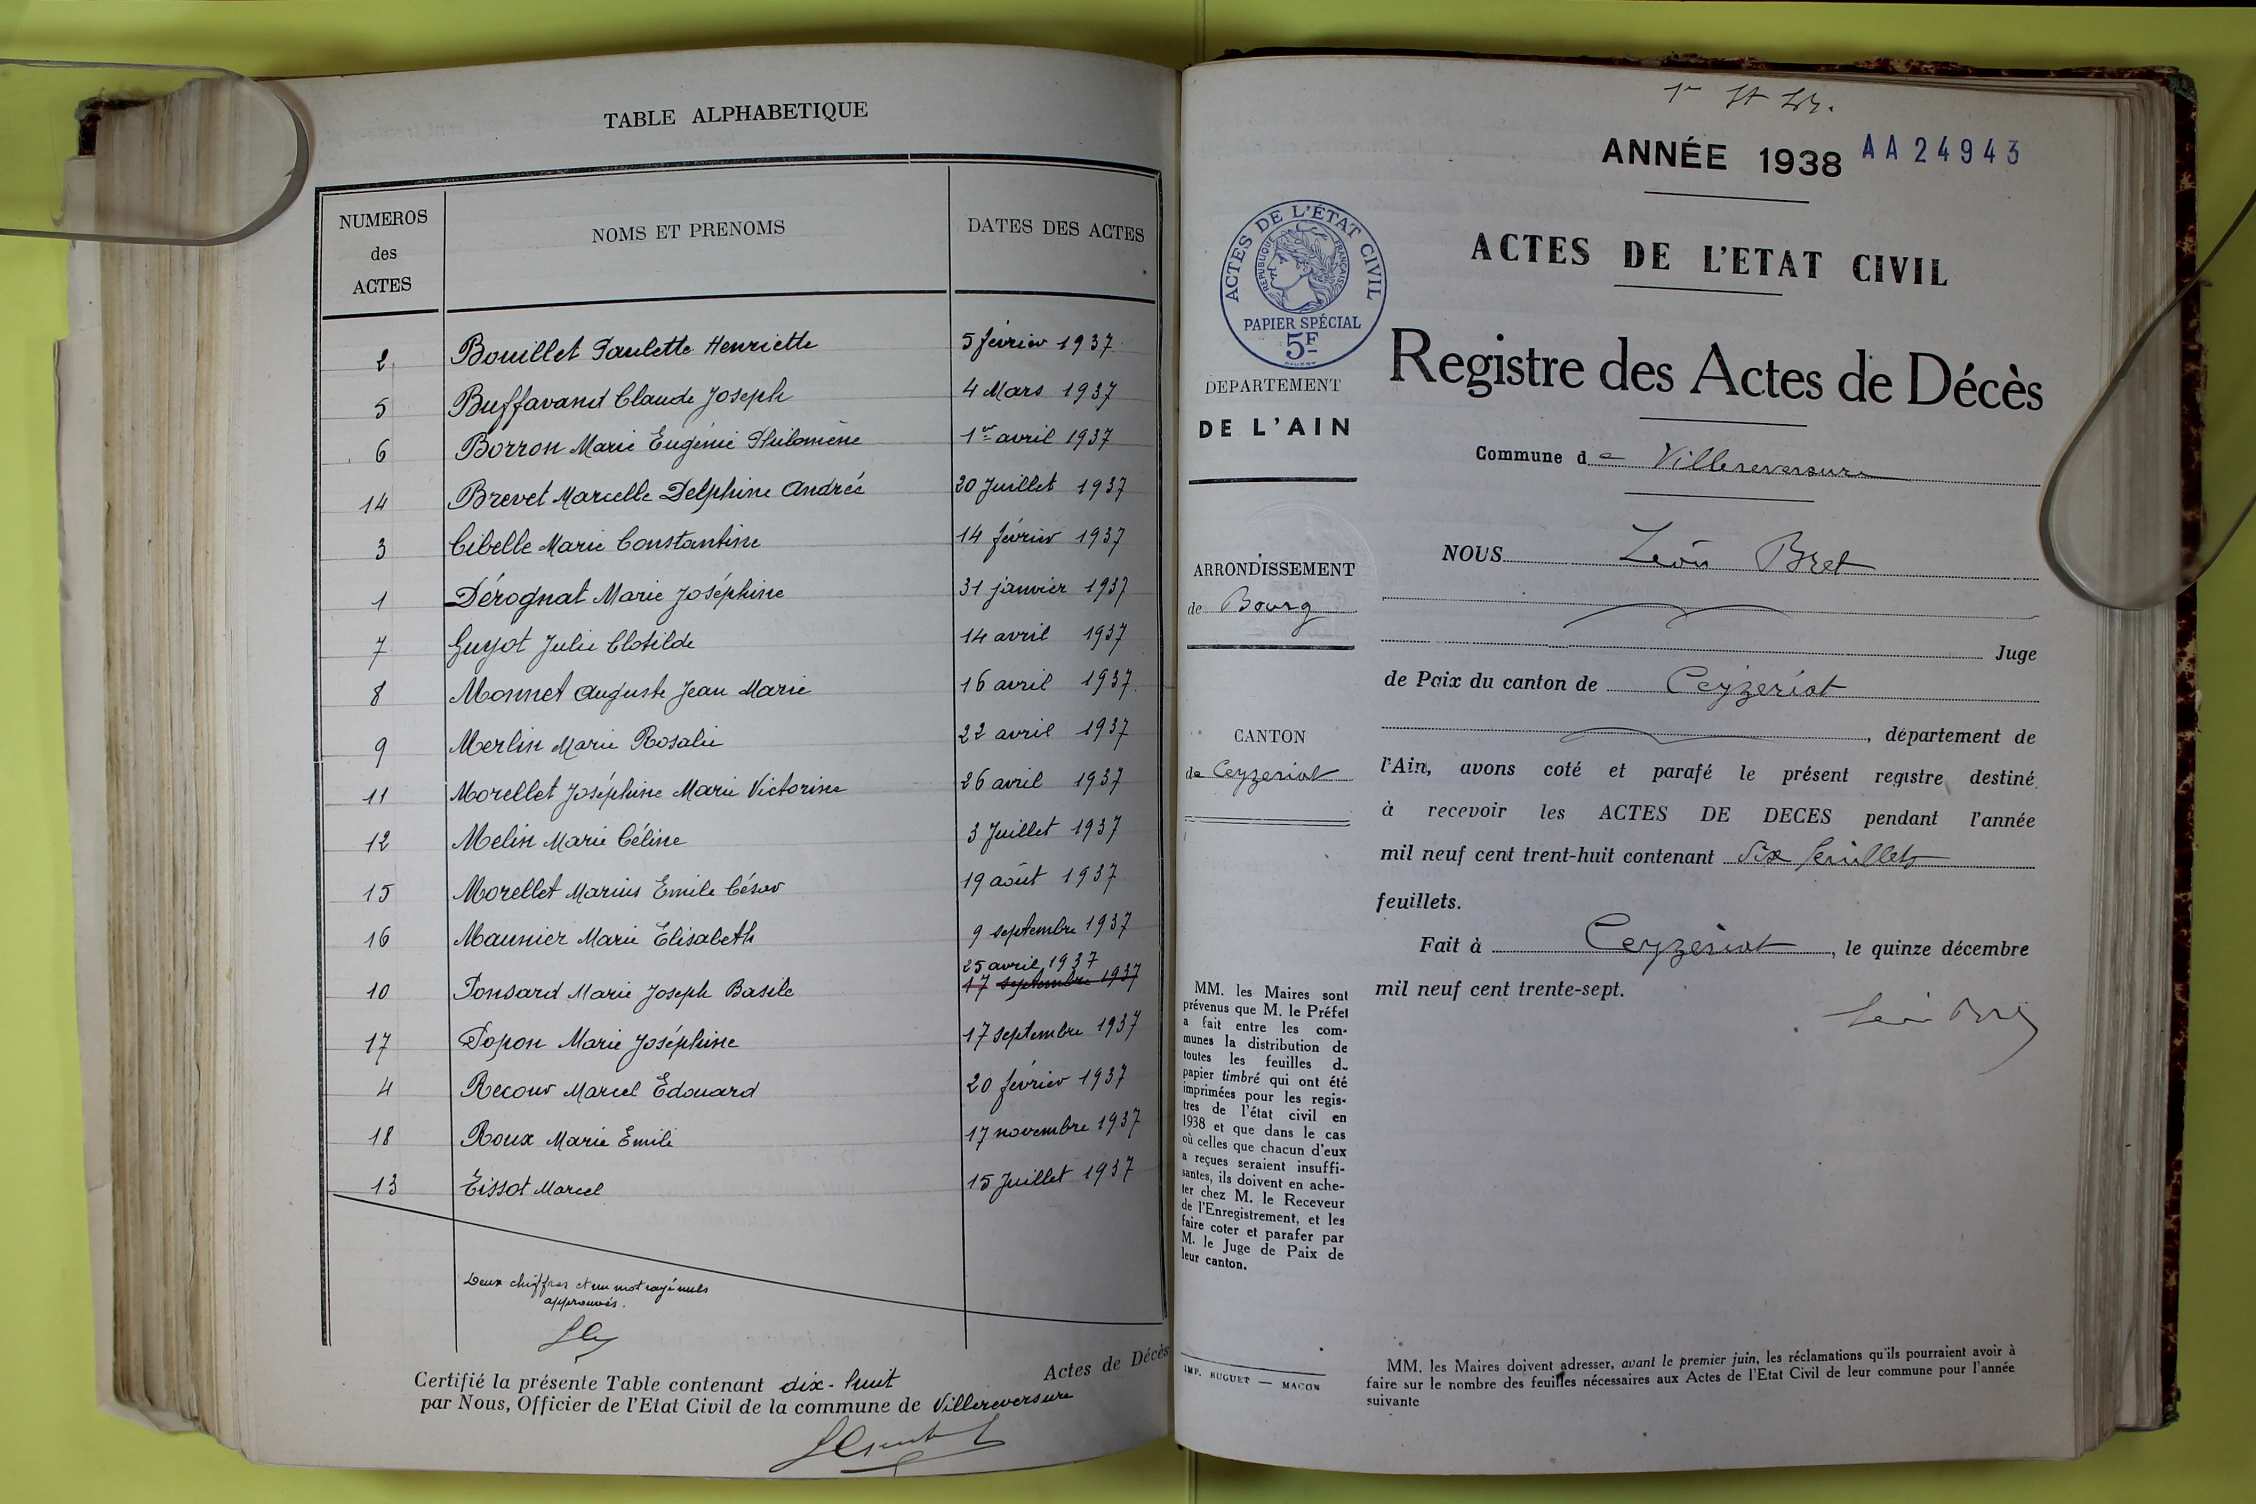 TABLE ALPHABETIQUE
NUMEROS des ACTES
NOMS ET PRENOMS
DATES DES ACTES
2 Bouillet Paulette Henriette 5 février 1937
5 Buffavand Claude Joseph 4 Mars 1937
6 Borron Marie Eugénie Philomène 1er avril 1937
14 Brevet Marcelle Delphine Andrée 20 Juillet 1937
3 Cibelle Marie Constantine 14 février 1937
1 Dérognat Marie Joséphine 31 janvier 1937
7 Guyot Julie Clotilde 14 avril 1937
8 Monnet Auguste Jean Marie 16 avril 1937
9 Merlin Marie Rosalie 22 avril 1937
11 Morellet Joséphine Marie Victorine 26 avril 1937
12 Melin Marie Céline 3 Juillet 1937
15 Morellet Marius Emile César 19 août 1937
16 Maunier Marie Elisabeth 9 septembre 1937
25 avril 1937
10 Ponsard Marie Joseph Basile 17 septembre 1937
17 Popon Marie Joséphine 17 septembre 1937
4 Recour Marcel Edouard 20 février 1937
18 Roux Marie Emile 17 novembre 1937
13 Tissot Marcel 15 Juillet 1937
Deux chiffres et un mot rayé nuls
approuvés.
Certifié la présente Table contenant dix-huit Actes de Décès
par Nous, Officier de l'Etat Civil de la commune de Villereversure
ANNÉE 1938 AA 24943
ACTES DE L'ÉTAT CIVIL
REPUBLIQUE FRANÇAISE
PAPIER SPÉCIAL
5F
ACTES DE L'ETAT CIVIL
Registre des Actes de Décès
DEPARTEMENT
DE L'AIN
Commune de Villereversure
ARRONDISSEMENT
de Bourg
CANTON
de Ceyzeriat
NOUS Léon Bret
Juge
de Paix du canton de Ceyzeriat
, département de
l'Ain, avons coté et parafé le présent registre destiné
à recevoir les ACTES DE DECES pendant l'année
mil neuf cent trent-huit contenant six feuillets
feuillets.
Fait à Ceyzeriat, le quinze décembre
mil neuf cent trente-sept.
MM. les Maires sont
prévenus que M. le Préfet
a fait entre les com-
munes la distribution de
toutes les feuilles d
papier timbré qui ont été
imprimées pour les regis-
tres de l'état civil en
1938 et que dans le cas
où celles que chacun d'eux
a reçues seraient insuffi-
santes, ils doivent en ache-
ter chez M. le Receveur
de l'Enregistrement, et les
faire coter et parafer par
M. le Juge de Paix de
leur canton.
IMP. BUGUET — MACON
MM. les Maires doivent adresser, avant le premier juin, les réclamations qu'ils pourraient avoir à
faire sur le nombre des feuilles nécessaires aux Actes de l'Etat Civil de leur commune pour l'année
suivante